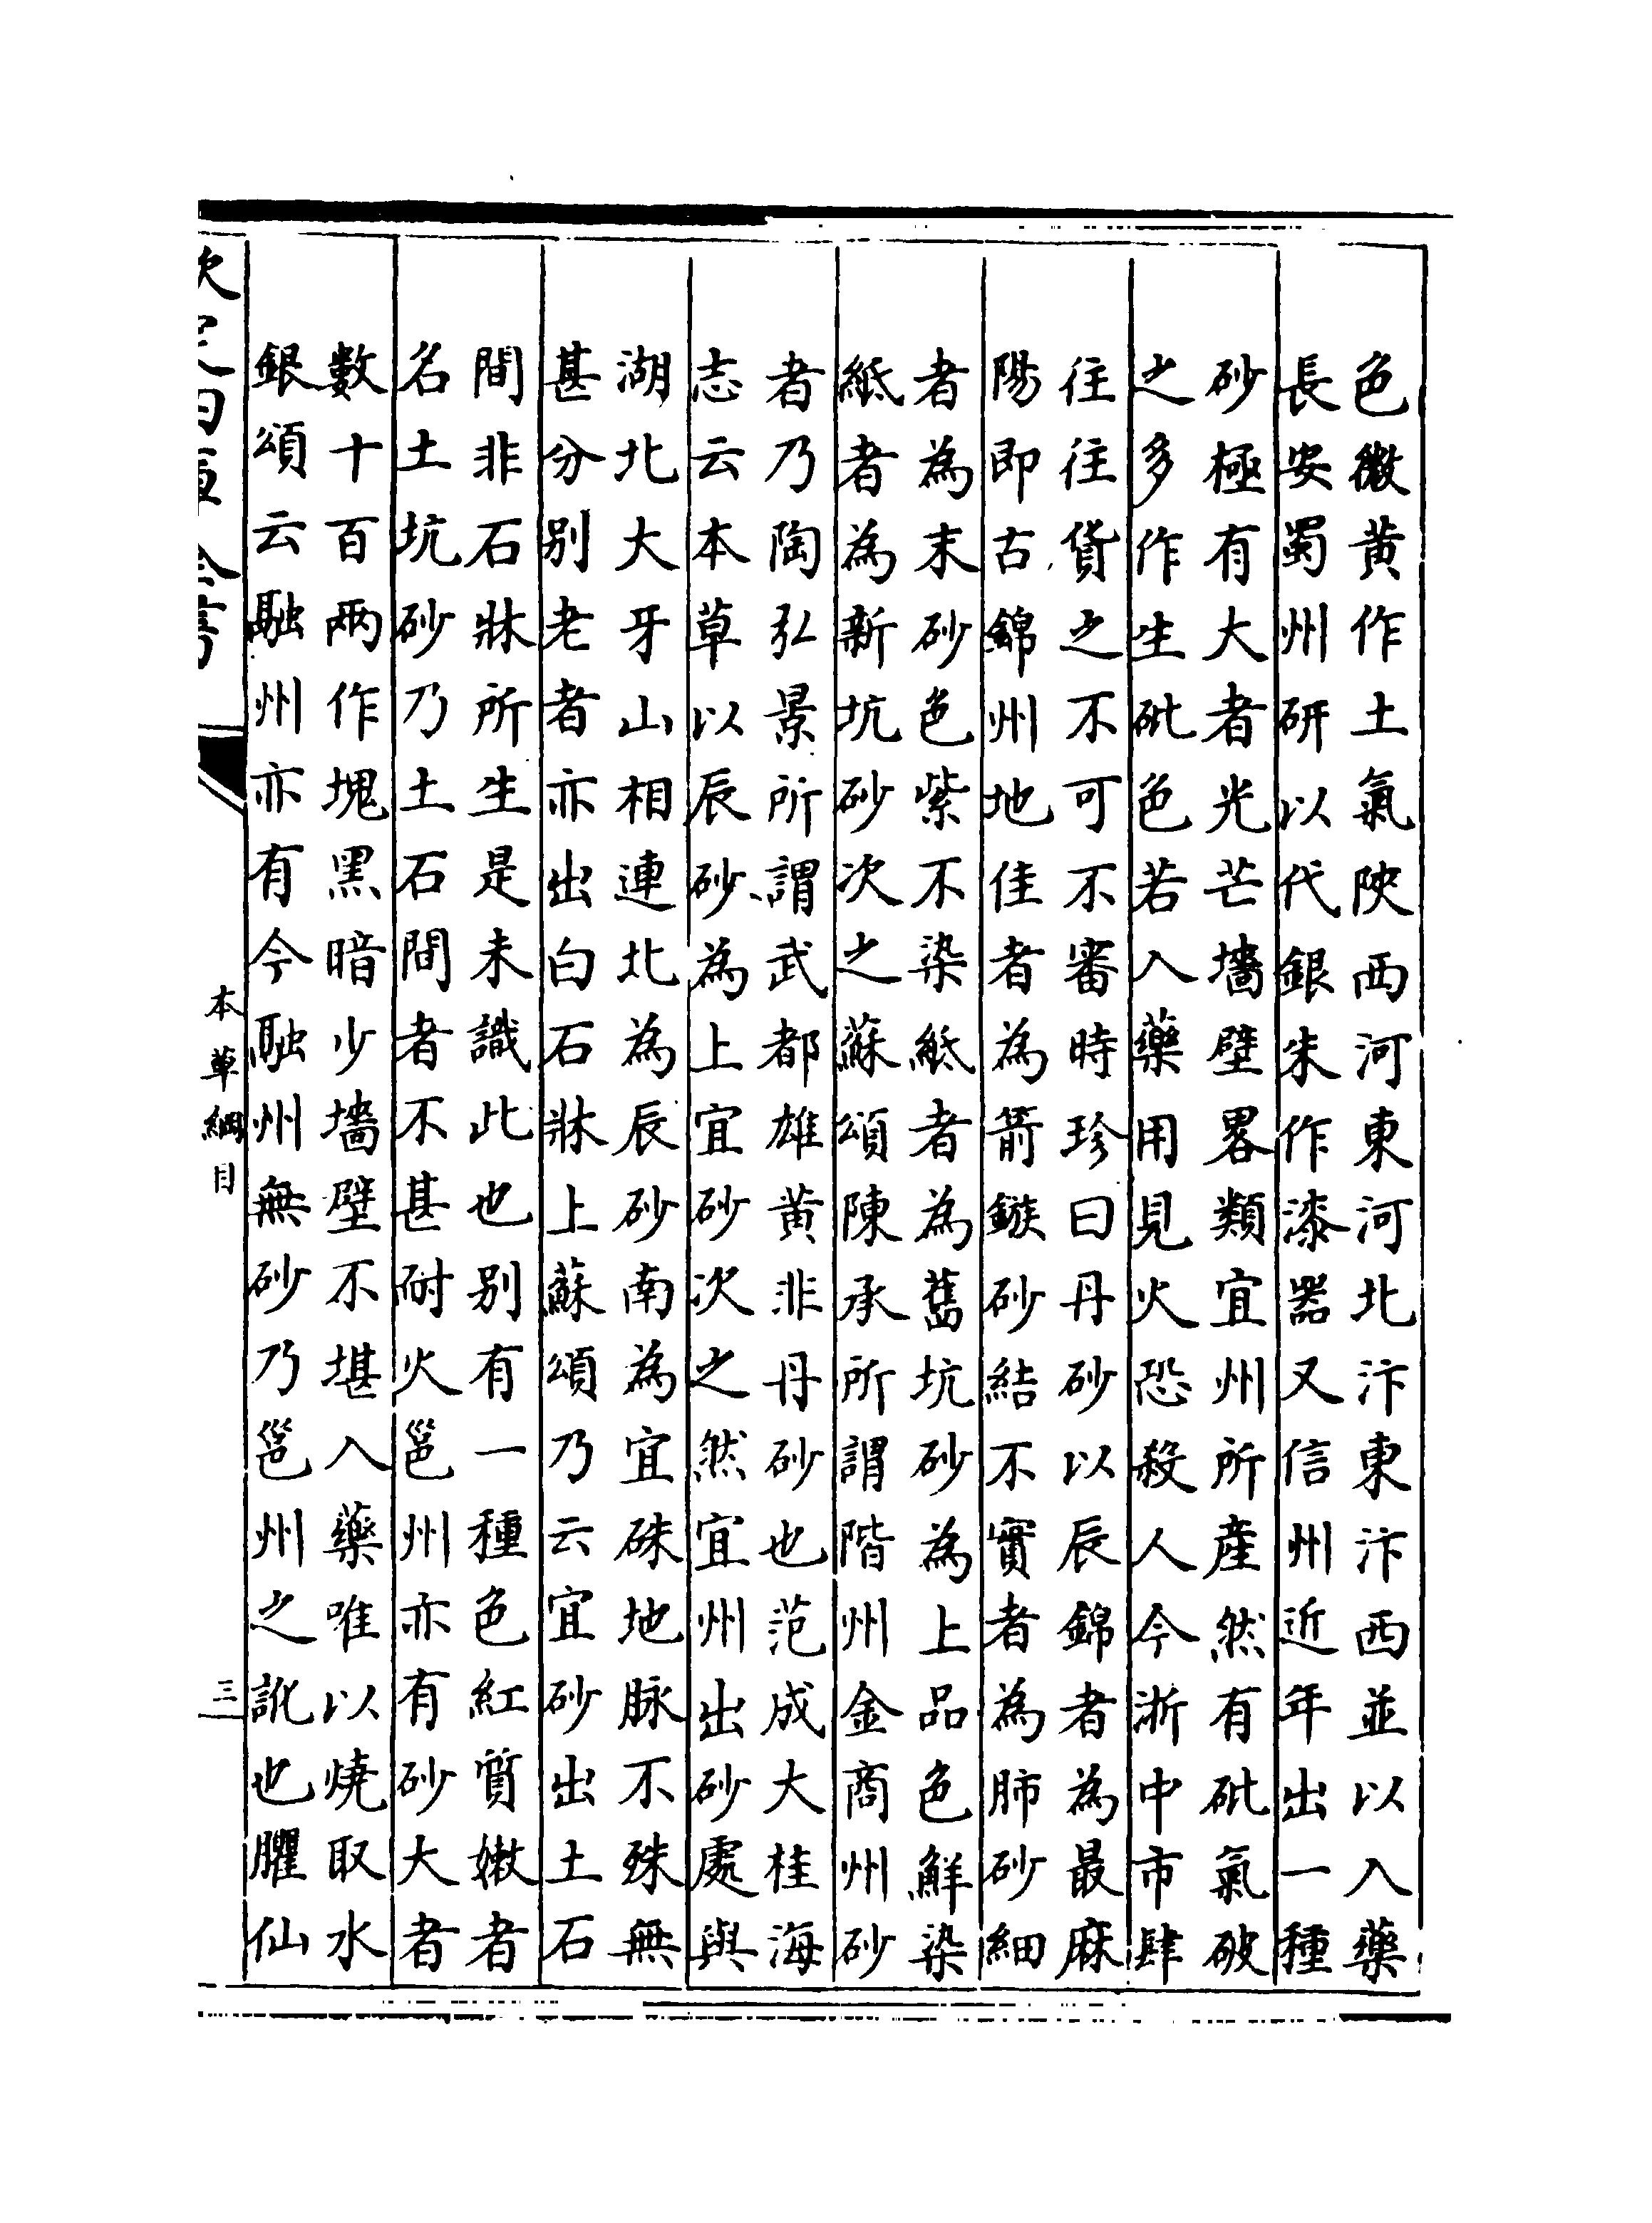 色微黄作土氣陜西河東河北汴東汴西並以入藥
長安蜀州研以代銀朱作漆器又信州近年出一種
砂極有大者光芒墻壁畧類宜州所産然有砒氣破
之多作生砒色若入藥用見火恐殺人今浙中市肆
往往貨之不可不審時珍曰丹砂以辰錦者為最麻
陽即古錦州地佳者為箭鏃砂結不實者為肺砂細
者為末砂色紫不染紙者為舊坑砂為上品色鮮染
紙者為新坑砂次之蘇頌陳承所謂階州金商州砂
者乃陶弘景所謂武都雄黄非丹砂也范成大桂海
志云本草以辰砂為上宜砂次之然宜州出砂處與
湖北大牙山相連北為辰砂南為宜硃地脉不殊無
甚分别老者亦出白石牀上蘇頌乃云宜砂出土石
間非石牀所生是未識此也别有一種色紅質嫩者
名土坑砂乃土石間者不甚耐火邕州亦有砂大者
數十百兩作塊黒暗少墻壁不堪入藥唯以燒取水
銀頌云融州亦有今融州無砂乃邕州之訛也臞仙
欽定四庫全書
本草綱目
三